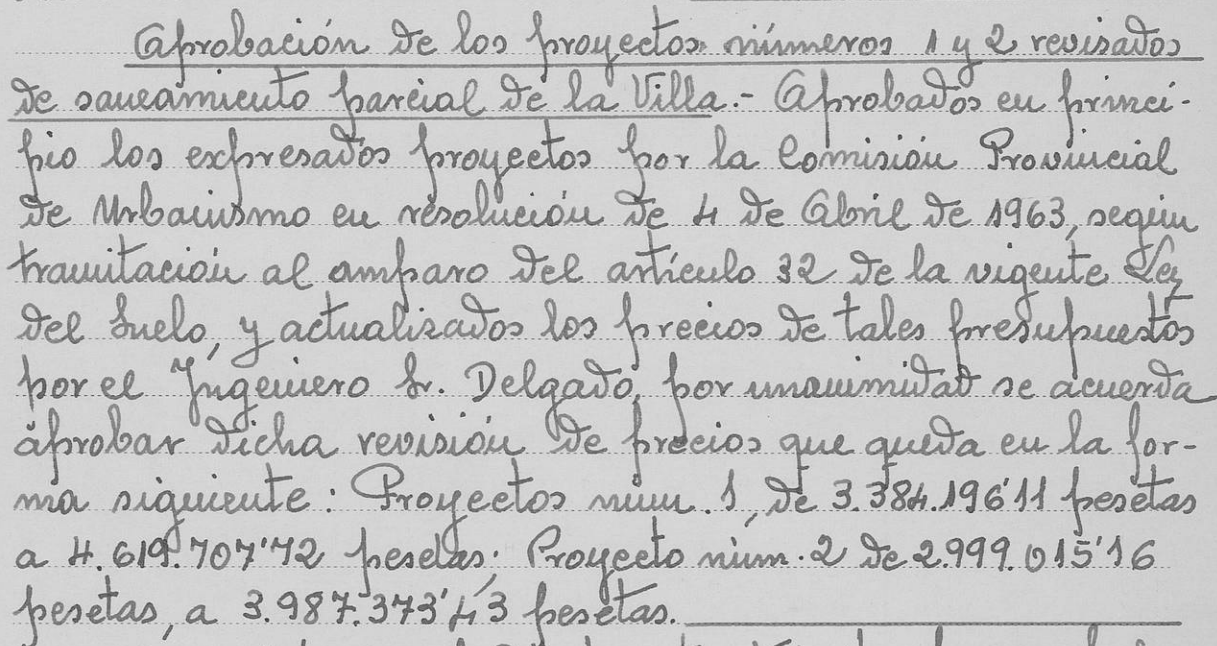 Aprobación de los proyectos números 1 y 2 revisados
de saneamiento parcial de la Villa.- Aprobados en princi-
pio los expresados proyectos por la Comisión Provincial
de Urbanismo en resolución de 4 de Abril de 1963, según
tramitación al amparo del artículo 32 de la vigente Ley
del Suelo, y actualizados los precios de tales presupuestos
por el Ingeniero Sr. Delgado, por unanimidad se acuerda
aprobar dicha revisión de precios que queda en la for-
ma siguiente: Proyectos núm. 1, de 3.384.196'11 pesetas
a 4.619.707'72 pesetas; Proyecto núm. 2 de 2.999.015'16
pesetas, a 3.987.373'43 pesetas.